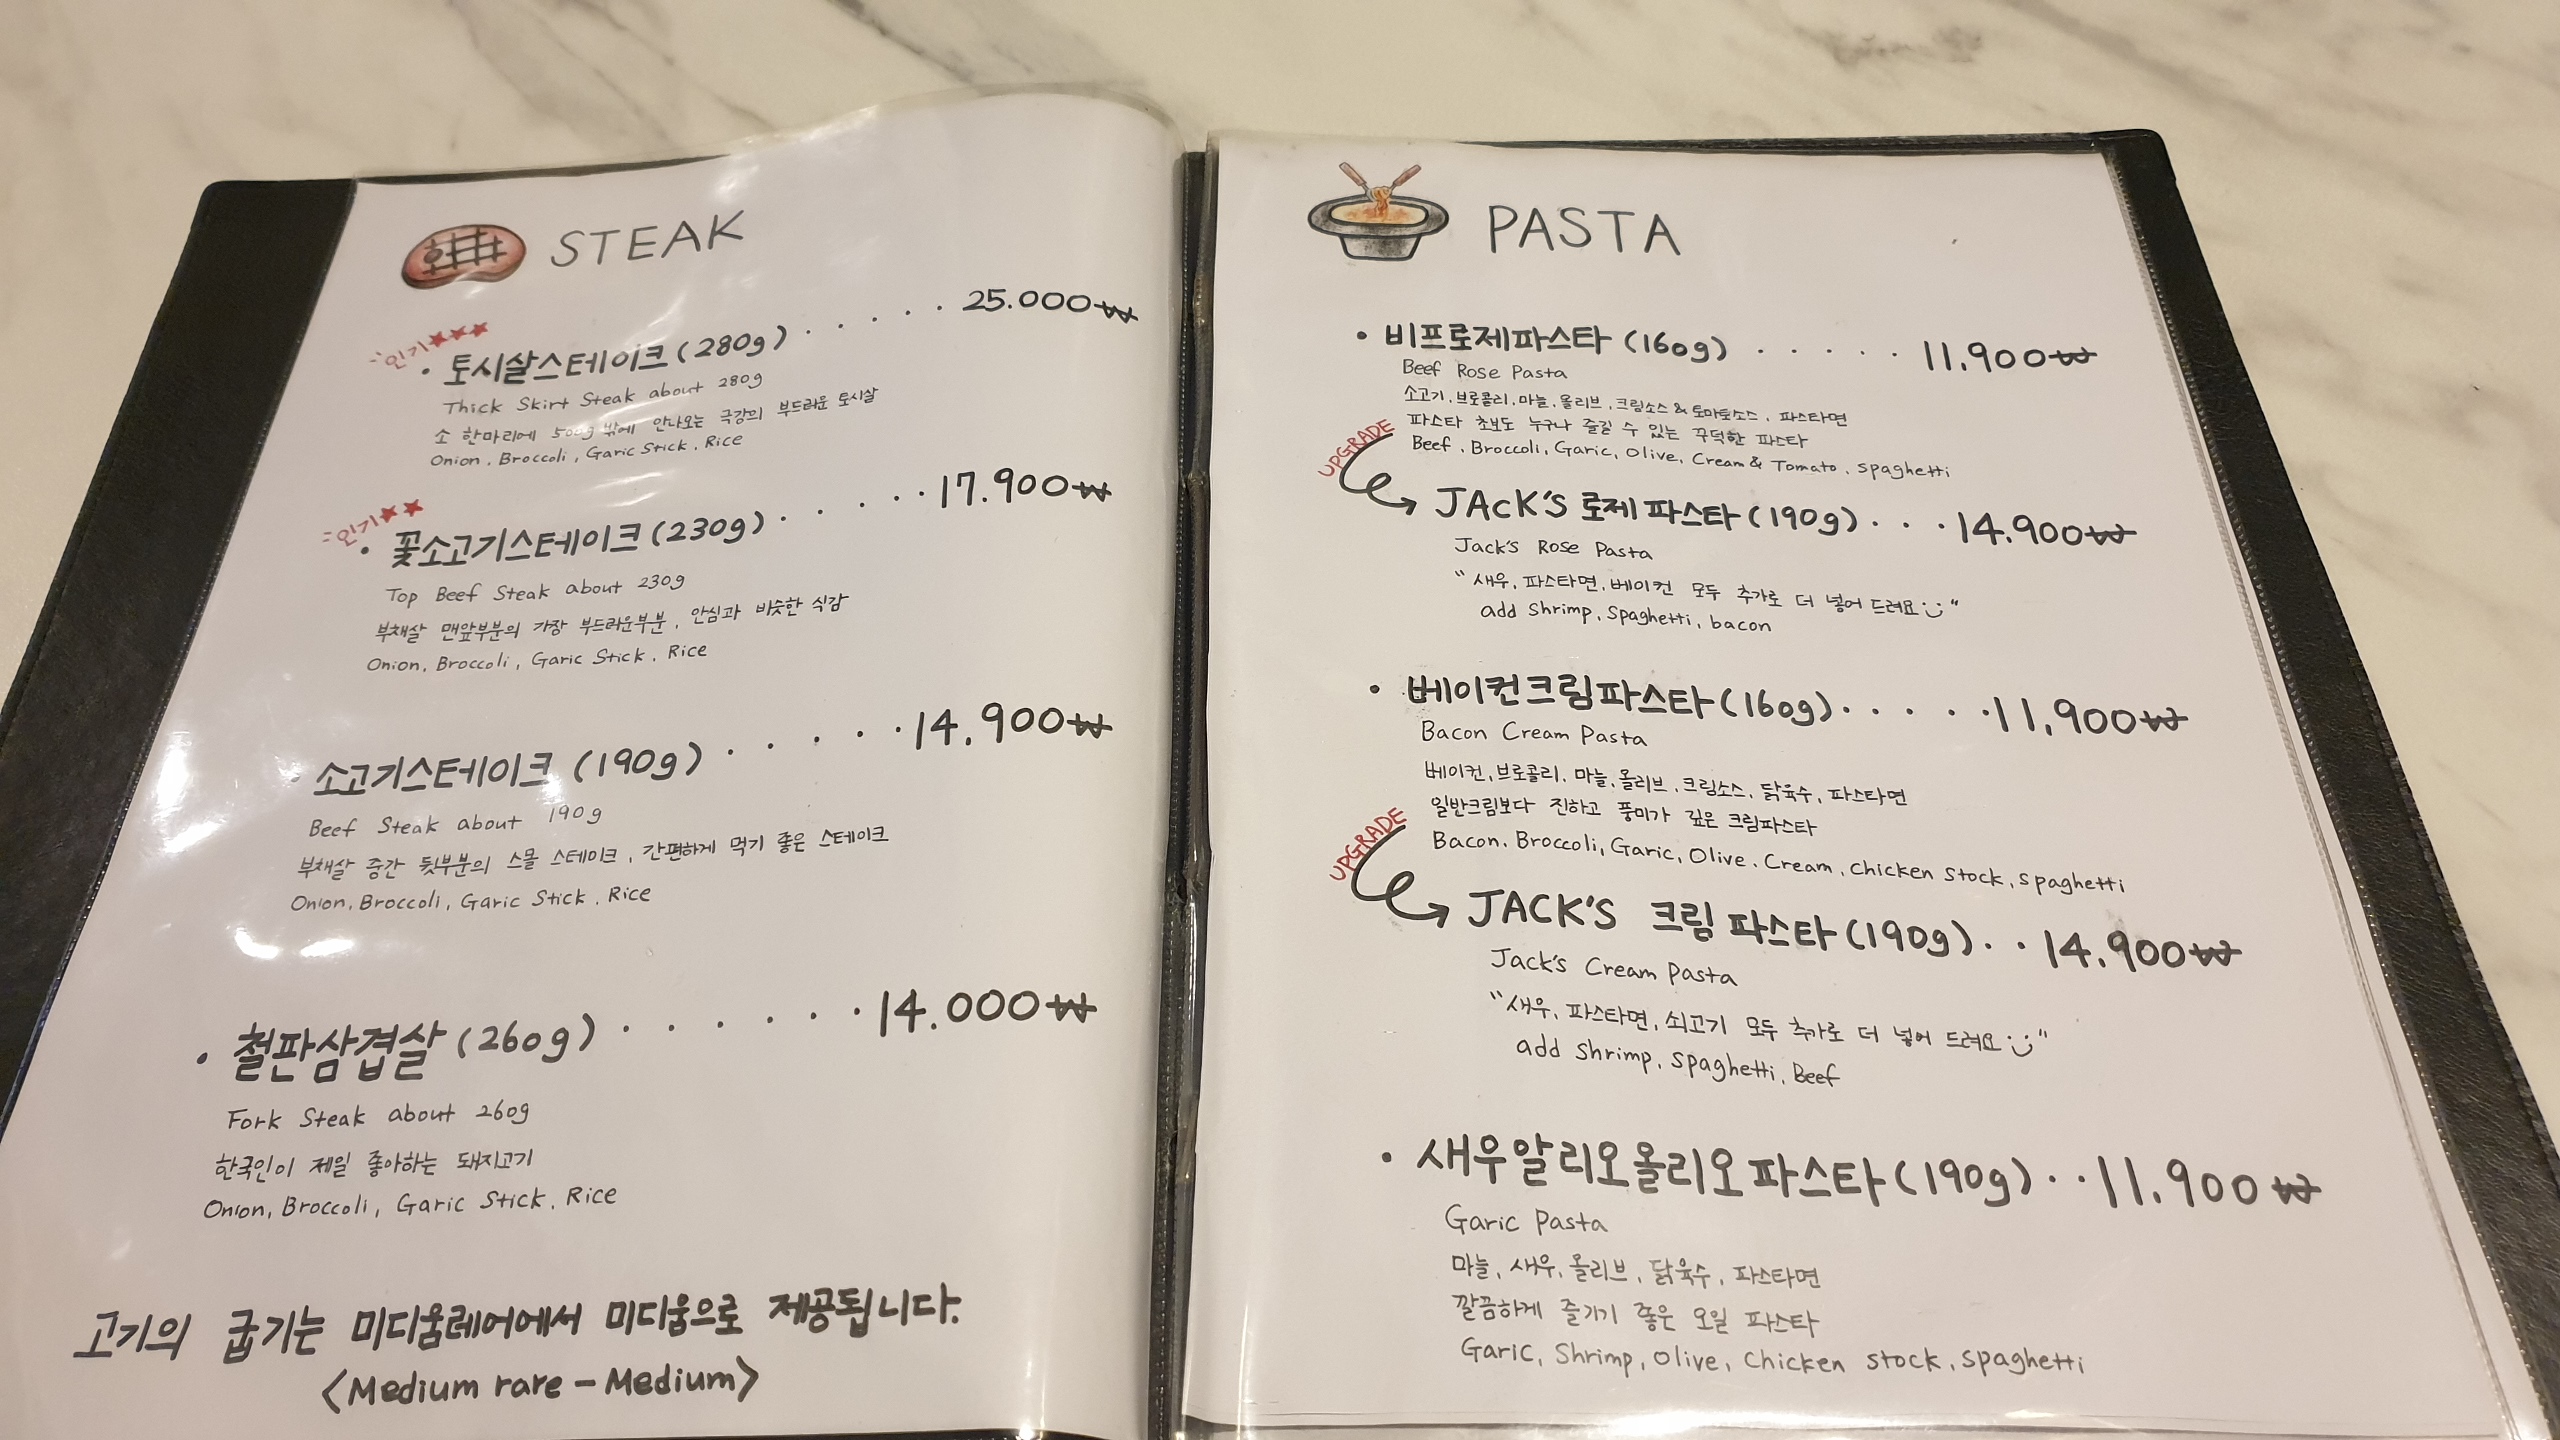 STEAK
인기★★★
· 토시살스테이크 (280g) · · · · · 25.000₩
Thick Skirt Steak about 280g
소 한마리에 500g 밖에 안나오는 극강의 부드러운 토시살
Onion, Broccoli, Garic Stick, Rice
인기★★
· 꽃소고기스테이크 (230g) · · · · · 17.900₩
Top Beef Steak about 230g
부채살 맨앞부분의 가장 부드러운부분, 안심과 비슷한 식감
Onion, Broccoli, Garic Stick, Rice
· 소고기스테이크 (190g) · · · · · 14.900₩
Beef Steak about 190g
부채살 중간 뒷부분의 스몰 스테이크, 간편하게 먹기 좋은 스테이크
Onion, Broccoli, Garic Stick, Rice
· 철판삼겹살 (260g) · · · · · · 14.000₩
Fork Steak about 260g
한국인이 제일 좋아하는 돼지고기
Onion, Broccoli, Garic Stick, Rice
고기의 굽기는 미디움레어에서 미디움으로 제공됩니다.
<Medium rare - Medium>
PASTA
· 비프로제파스타 (160g) · · · · · 11,900₩
Beef Rose Pasta
소고기, 브로콜리, 마늘, 올리브, 크림소스 & 토마토소스, 파스타면
파스타 초보도 누구나 즐길 수 있는 꾸덕한 파스타
Beef, Broccoli, Garic, Olive, Cream & Tomato, spaghetti
UPGRADE
JACK'S 로제 파스타 (190g) · · · 14.900₩
Jack's Rose Pasta
"새우, 파스타면, 베이컨 모두 추가로 더 넣어 드려요"
add shrimp, spaghetti, bacon
· 베이컨크림파스타 (160g) · · · · · 11,900₩
Bacon Cream Pasta
베이컨, 브로콜리, 마늘, 올리브, 크림소스, 닭육수, 파스타면
일반크림보다 진하고 풍미가 깊은 크림파스타
Bacon, Broccoli, Garic, Olive, Cream, chicken stock, spaghetti
UPGRADE
JACK'S 크림 파스타 (190g) · · 14.900₩
Jack's Cream Pasta
"새우, 파스타면, 쇠고기 모두 추가로 더 넣어 드려요"
add shrimp, spaghetti, Beef
· 새우알리오올리오파스타 (190g) · · 11,900₩
Garic Pasta
마늘, 새우, 올리브, 닭육수, 파스타면
깔끔하게 즐기기 좋은 오일 파스타
Garic, Shrimp, Olive, Chicken stock, spaghetti